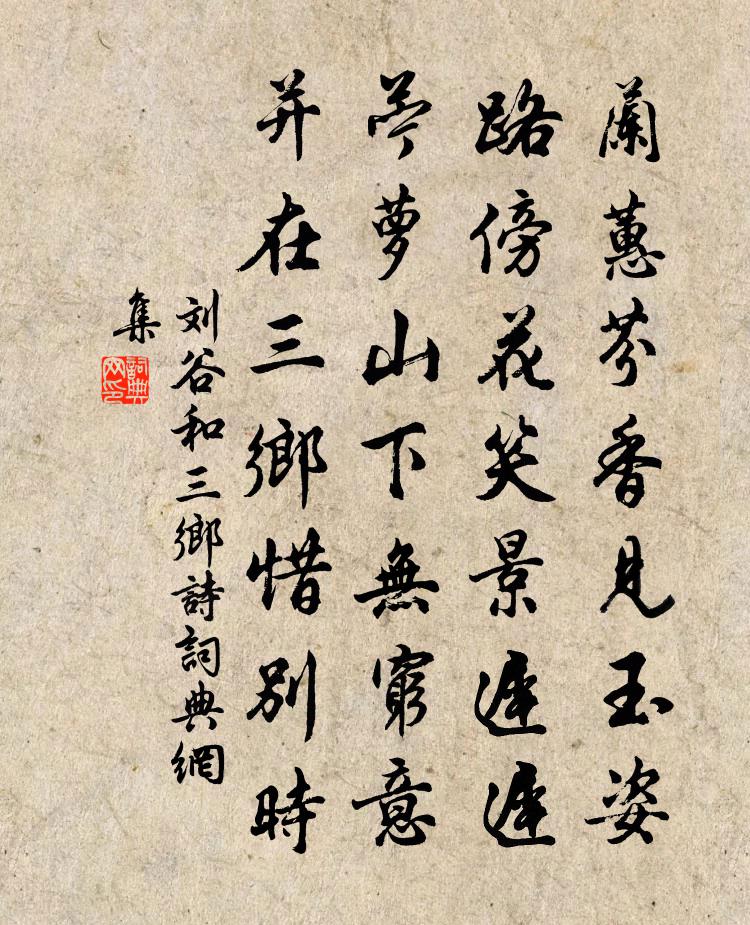 蘭蕙芬香見玉姿
路傍花笑景遲遲
苎萝山下無窮意
并在三鄉惜別時
刘谷和三鄉詩詞典網
集
詞典网印